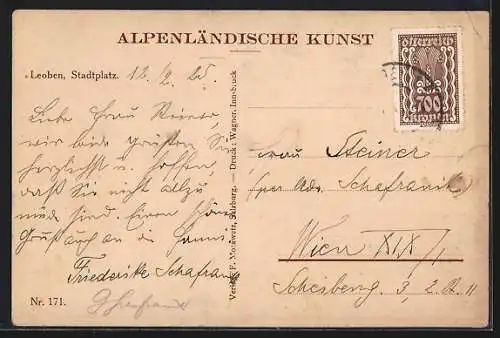 ALPENLÄNDISCHE KUNST
Leoben, Stadtplatz. 12./2. 25.
Liebe Frau Steiner,
wir beide grüßen Sie
herzlichst u. hoffen,
daß Sie nicht allzu
müde sind. Einen schönen
Gruß auch an die
Friederike Schafranik
Nr. 171.
Verlag: F. Morawetz, Salzburg. — Druck: Wagner, Innsbruck
Österreich
700
Kronen
Frau Steiner
(per Adr. Schafranik)
Wien XIX/1
3, 2. 11